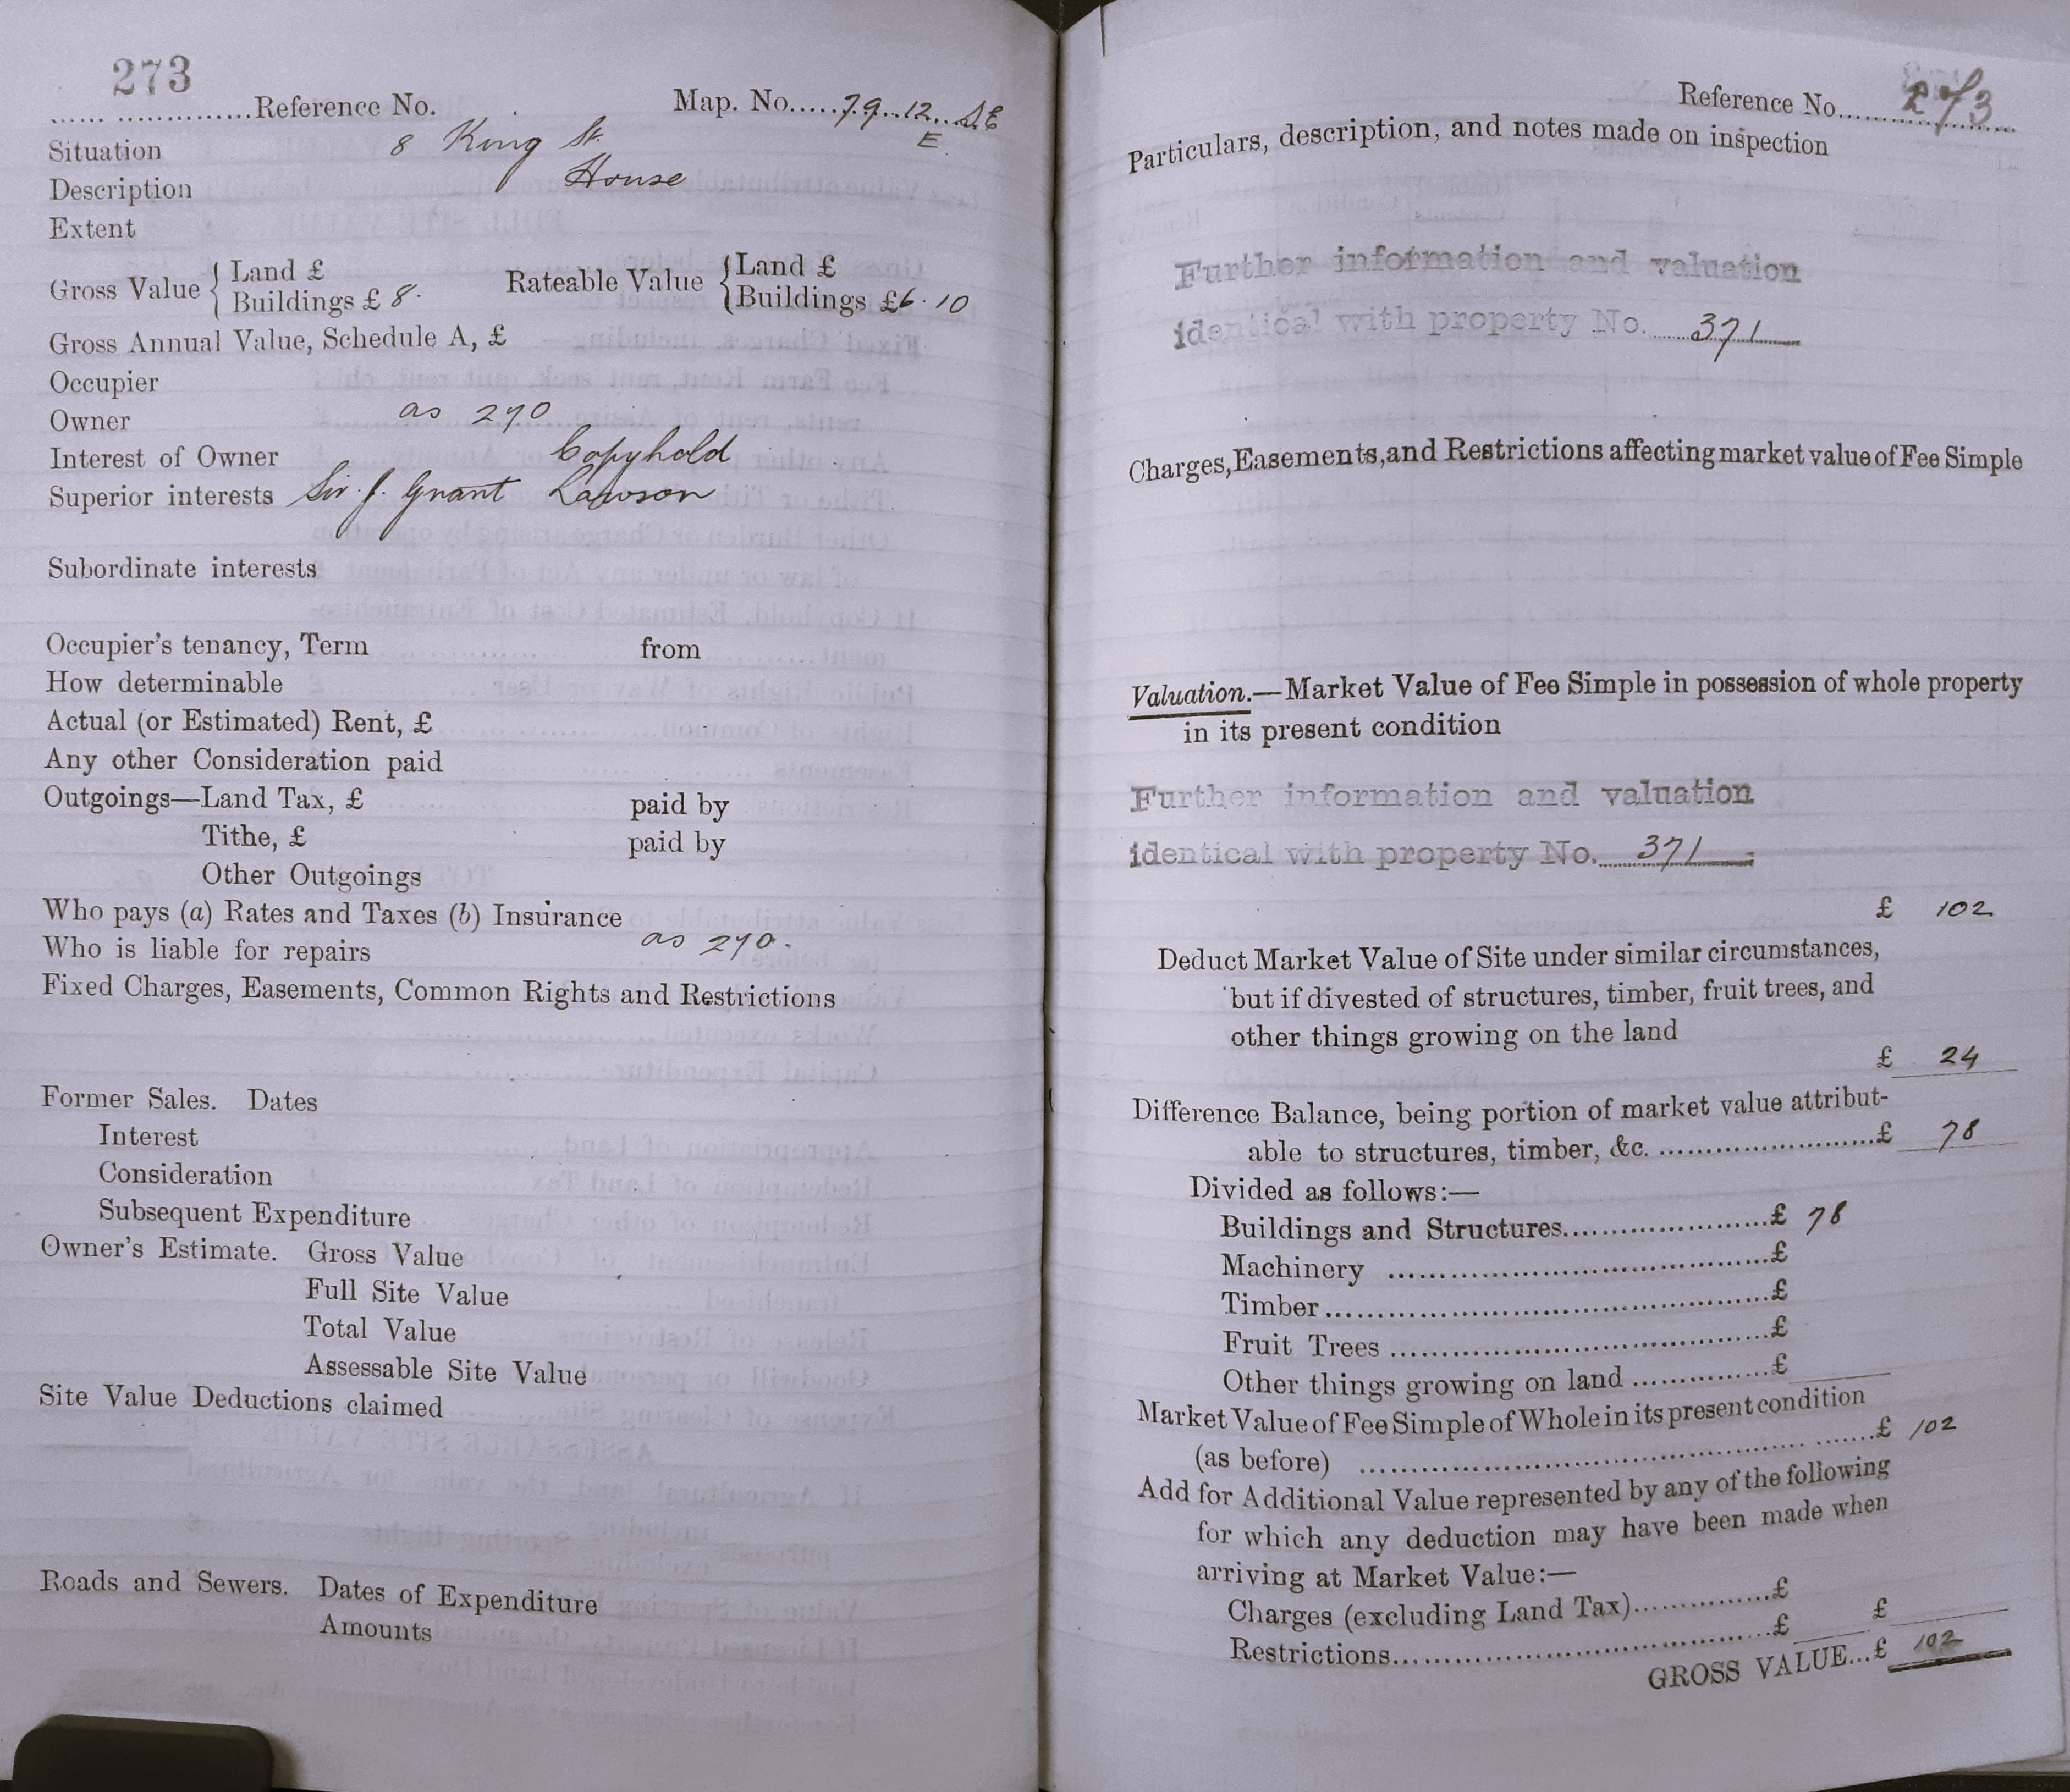 273
...... ...............Reference No. Map. No.....79..12...S.E
E
Situation 8 King St.
Description House
Extent
Gross Value { Land £ Rateable Value { Land £
Buildings £ 8. Buildings £6.10
Gross Annual Value, Schedule A, £
Occupier
Owner as 270
Interest of Owner Copyhold
Superior interests Sir. J. Grant Lawson
Subordinate interests
Occupier's tenancy, Term from
How determinable
Actual (or Estimated) Rent, £
Any other Consideration paid
Outgoings—Land Tax, £ paid by
Tithe, £ paid by
Other Outgoings
Who pays (a) Rates and Taxes (b) Insurance
Who is liable for repairs as 270.
Fixed Charges, Easements, Common Rights and Restrictions
Former Sales. Dates
Interest
Consideration
Subsequent Expenditure
Owner's Estimate. Gross Value
Full Site Value
Total Value
Assessable Site Value
Site Value Deductions claimed
Roads and Sewers. Dates of Expenditure
Amounts
Reference No. 273
Particulars, description, and notes made on inspection
Further information and valuation
identical with property No. 371
Charges, Easements, and Restrictions affecting market value of Fee Simple
Valuation.—Market Value of Fee Simple in possession of whole property
in its present condition
Further information and valuation
identical with property No. 371
£ 102
Deduct Market Value of Site under similar circumstances,
but if divested of structures, timber, fruit trees, and
other things growing on the land
£ 24
Difference Balance, being portion of market value attribut-
able to structures, timber, &c. ........................£ 78
Divided as follows:—
Buildings and Structures.......................£ 78
Machinery .........................................£
Timber................................................£
Fruit Trees .........................................£
Other things growing on land ...............£
Market Value of Fee Simple of Whole in its present condition
(as before) ................................................£ 102
Add for Additional Value represented by any of the following
for which any deduction may have been made when
arriving at Market Value:—
Charges (excluding Land Tax)................£
Restrictions.........................................£ £
GROSS VALUE...£ 102